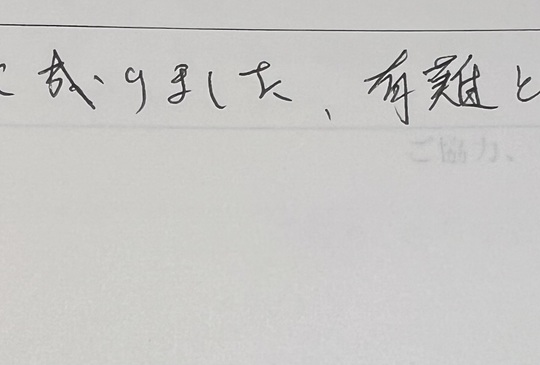 になりました、有難と
ご協力、